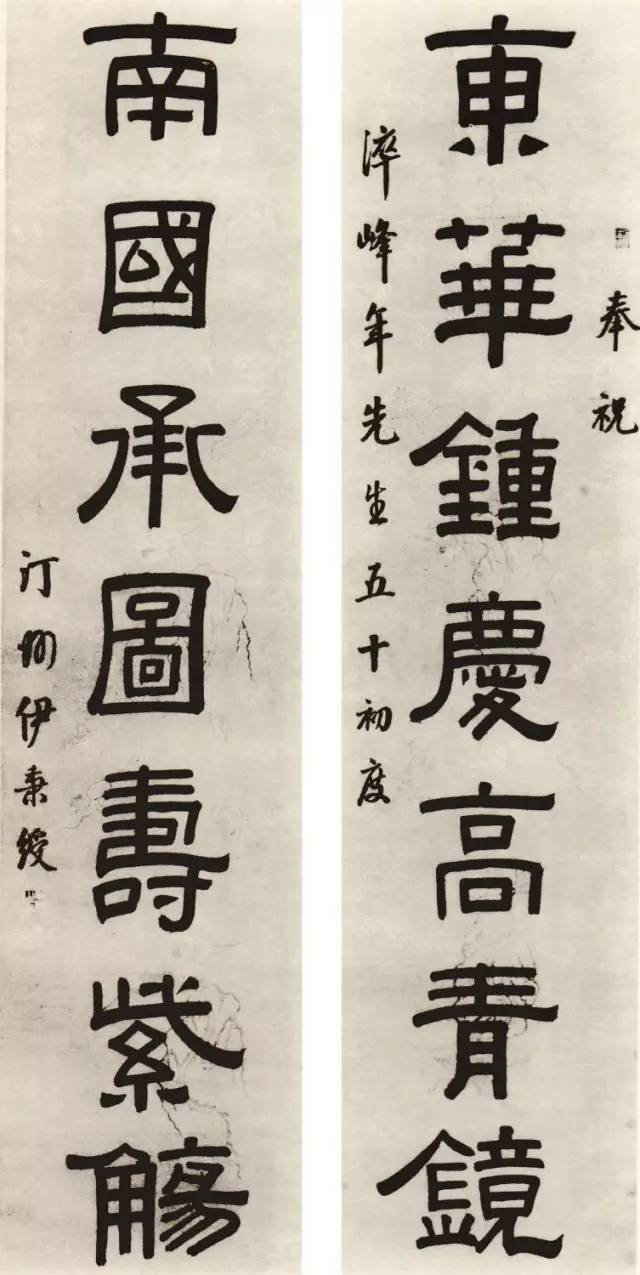 東華鍾慶高青鏡
奉祝
淬峰年先生五十初度
南國承圖壽紫觴
汀州伊秉綬